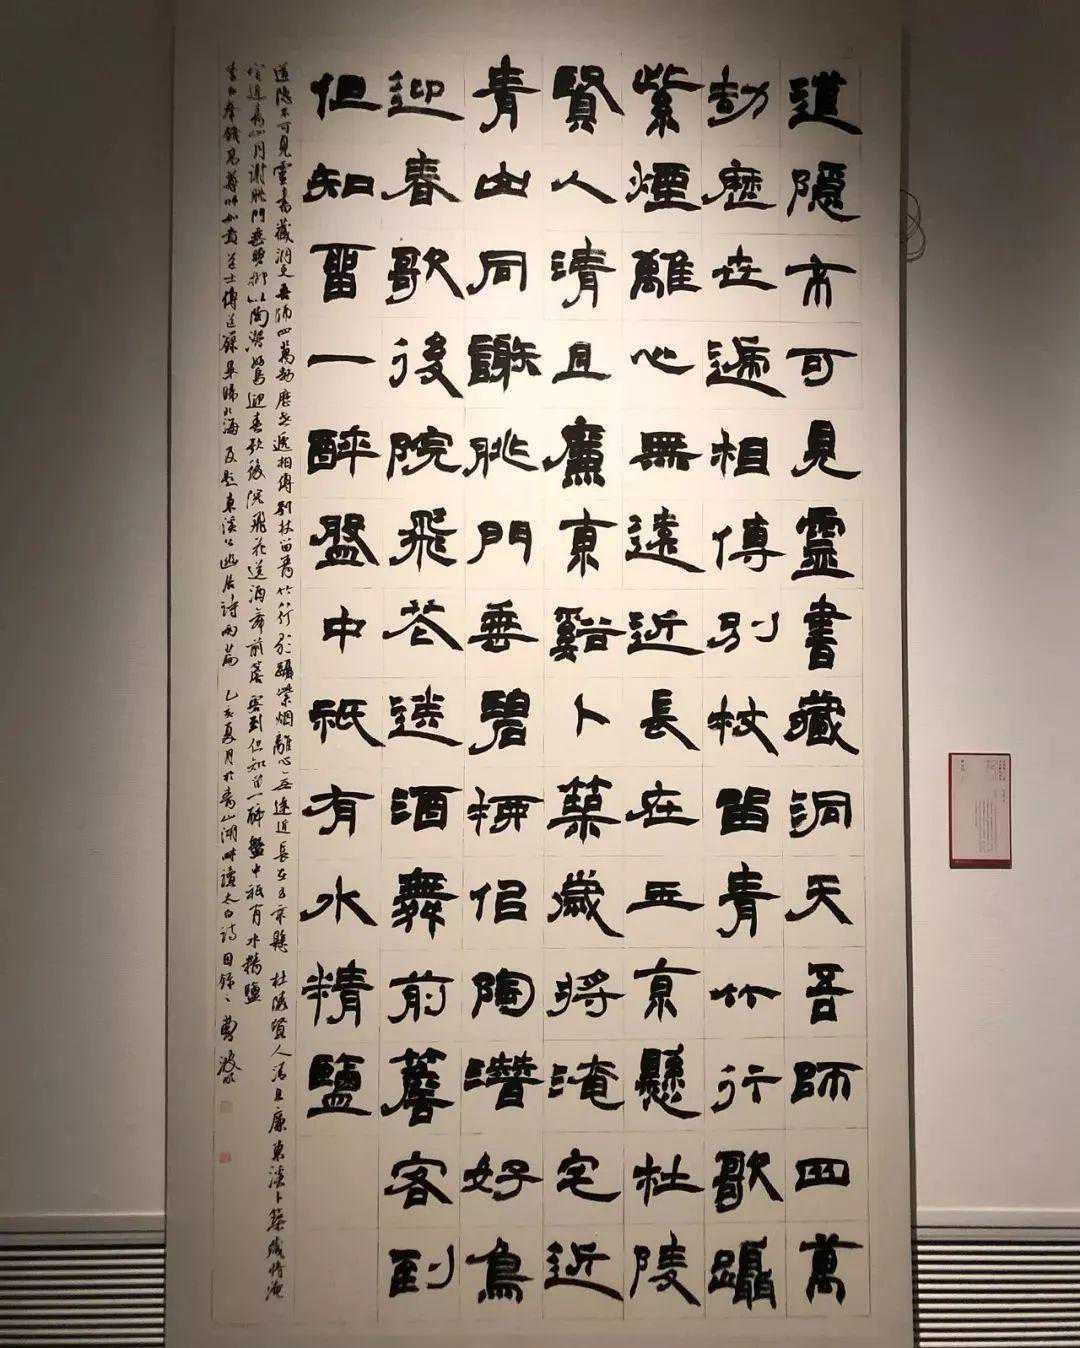 道隱不可見靈書藏洞天吾師四萬
劫歷世遞相傳別杖留青竹行歌躡
紫煙離心無遠近長在玉京懸杜陵
賢人清且廉東谿卜築歲將淹宅近
青山同謝朓門垂碧柳佀陶潛好鳥
迎春歌後院飛花送酒舞前簷客到
但知留一醉盤中祇有水精鹽
道隐不可見靈書藏洞天吾師四萬劫歷世遞相傳別杖留青竹行歌躡紫烟離心無遠近長在玉京懸 杜陵賢人清且廉東溪卜築歲將淹
宅近青山同謝朓門垂碧柳似陶潛好鳥迎春歌後院飛花送酒舞前簷客到但知留一醉盤中祇有水精鹽
李白奉餞高尊師如貴道士傳道籙畢歸北海及題東溪公幽居詩兩篇 己亥夏月於青山湖畔讀太白詩因錄之